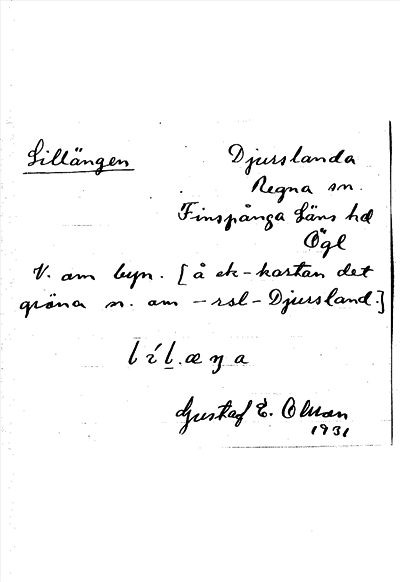 Lillängen
Djurslanda
Regna sn.
Finspånga Läns hd
Ögl
V. om byn. [å ek-kartan det
gröna n. om -rsl- Djursland.]
lí l. æŋa
Gustaf E. Olsson
1931